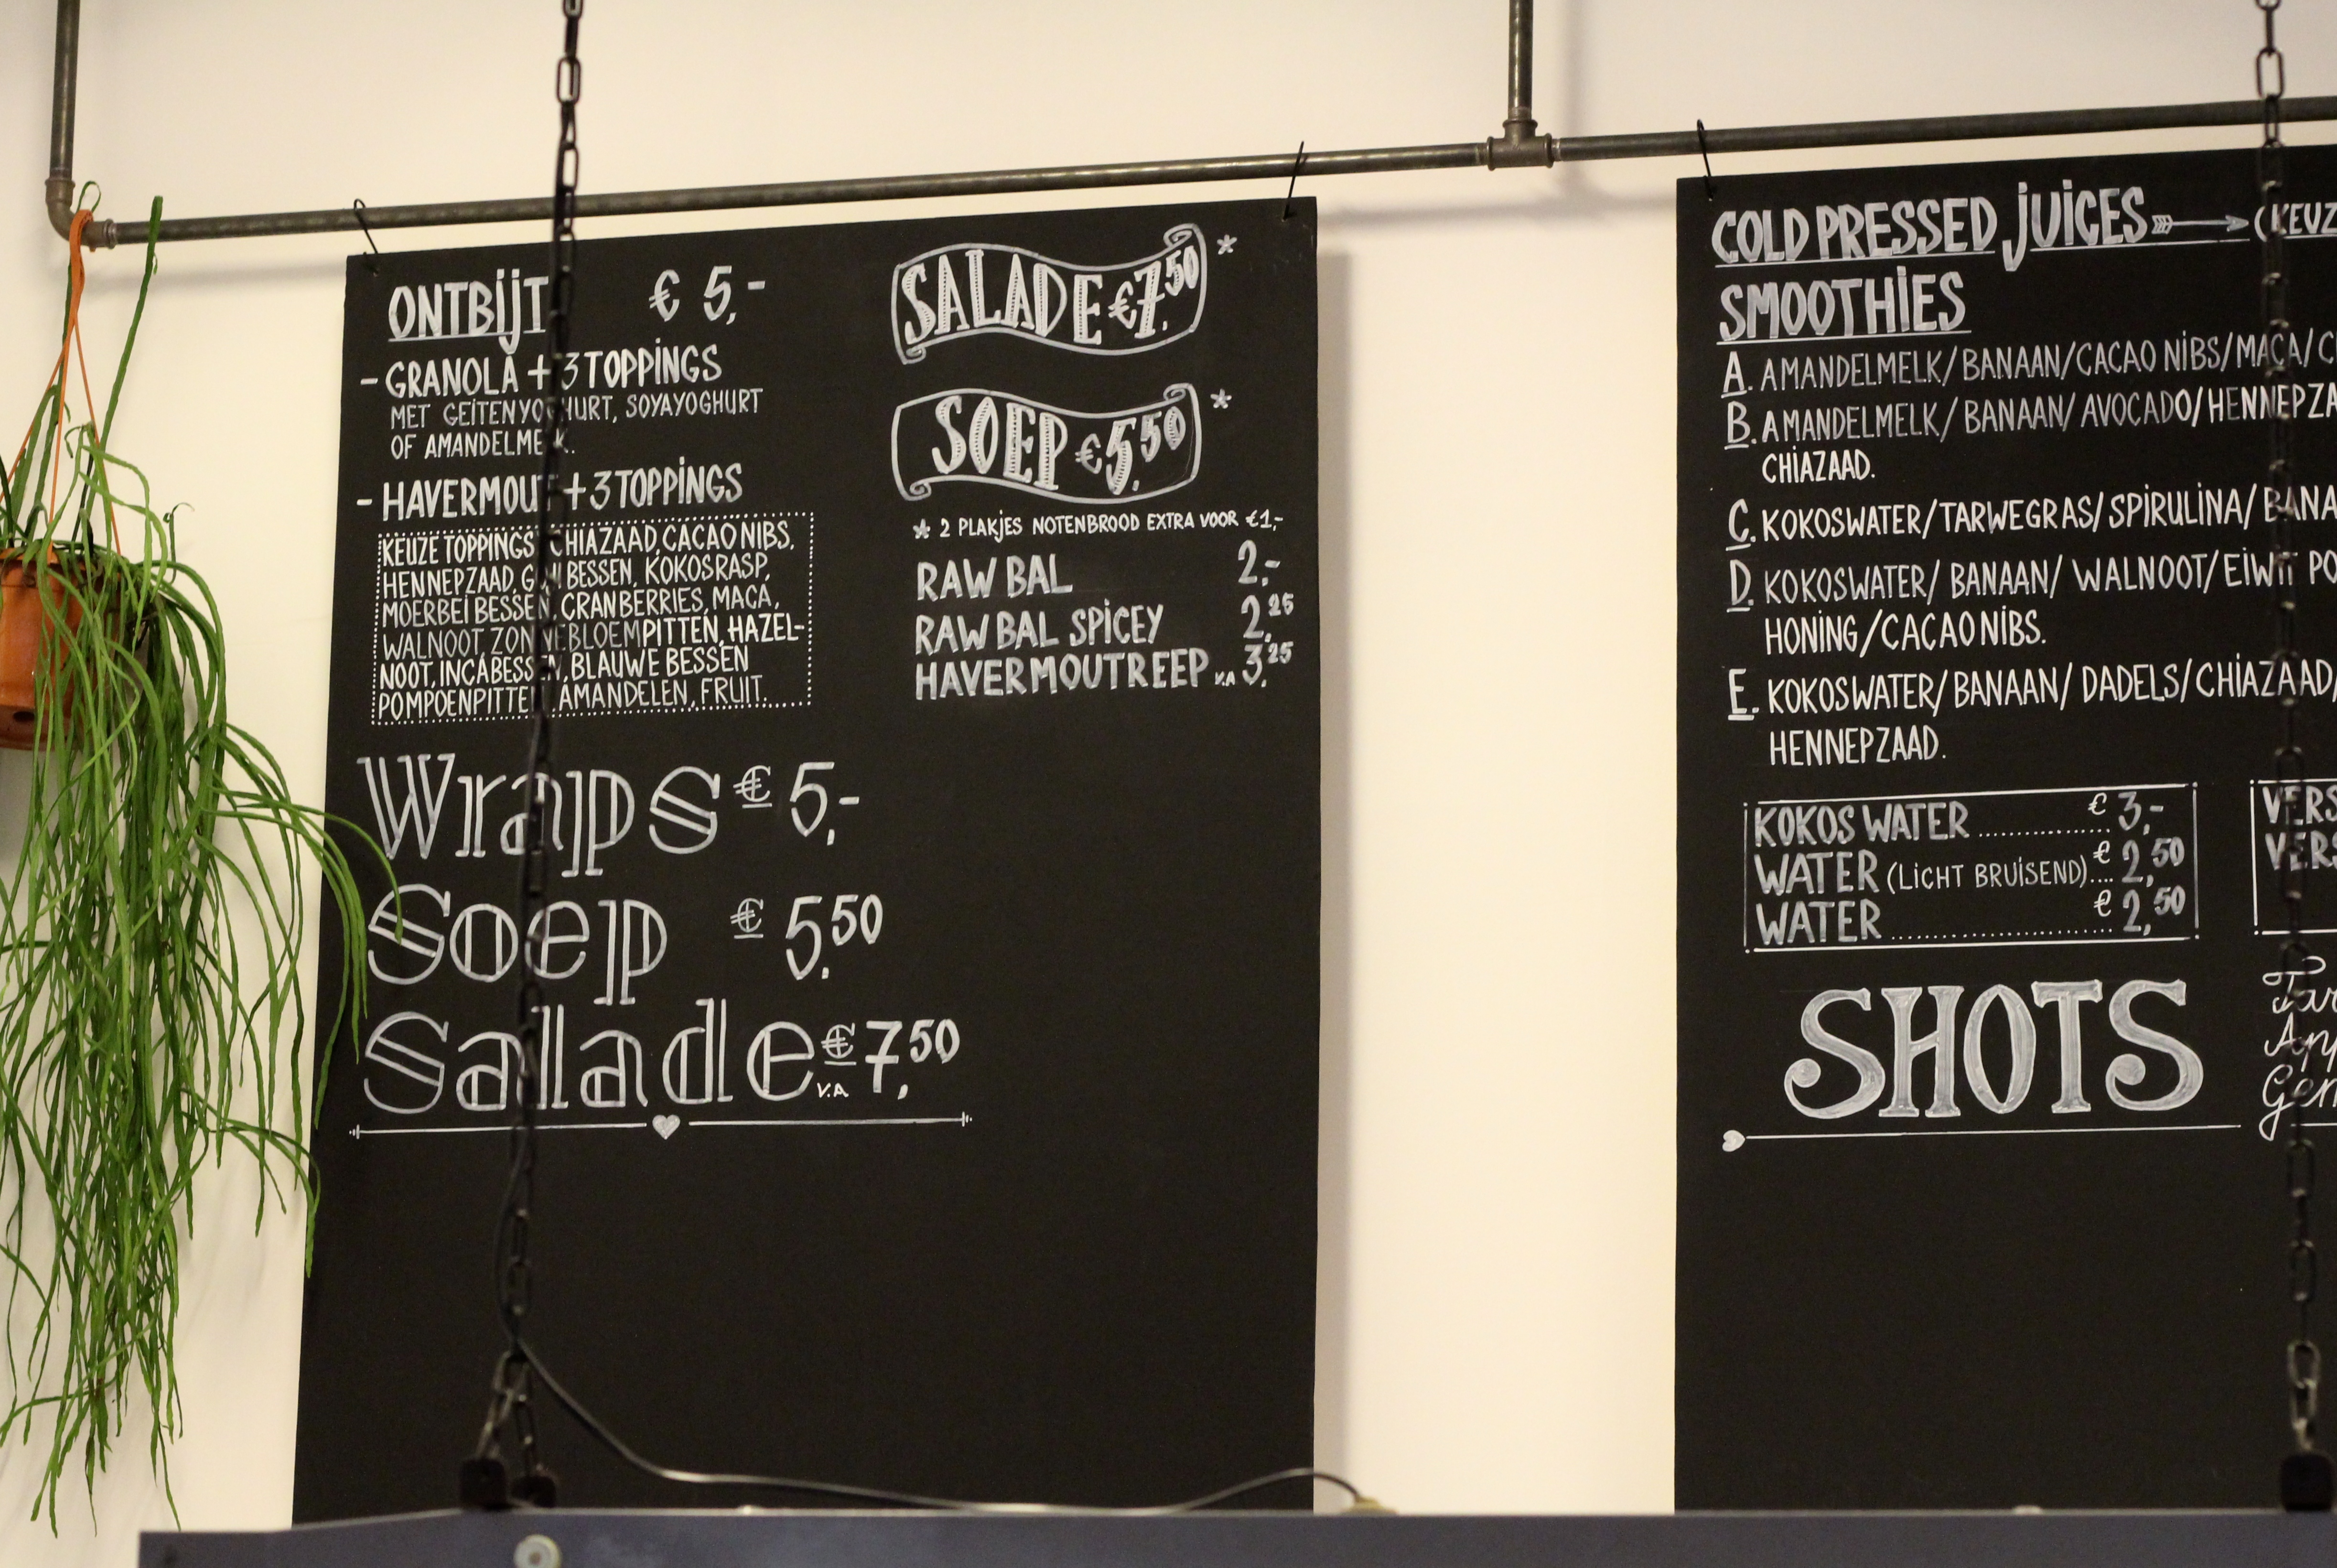 ONTBIJT € 5,-
- GRANOLA + 3 TOPPINGS
MET GEITENYOGHURT, SOYAYOGHURT
OF AMANDELMELK.
- HAVERMOUT + 3 TOPPINGS
KEUZE TOPPINGS CHIAZAAD, CACAO NIBS,
HENNEPZAAD, GOJI BESSEN, KOKOSRASP,
MOERBEI BESSEN, CRANBERRIES, MACA,
WALNOOT, ZONNEBLOEMPITTEN, HAZEL-
NOOT, INCABESSEN, BLAUWE BESSEN
POMPOENPITTEN, AMANDELEN, FRUIT.
Wraps € 5,-
Soep € 5.50
Salade v.a € 7,50
SALADE €7.50 *
SOEP €5.50 *
* 2 PLAKJES NOTENBROOD EXTRA VOOR €1,-
RAW BAL 2,-
RAW BAL SPICEY 2,25
HAVERMOUTREEP v.a 3,25
COLD PRESSED JUICES (KEUZ
SMOOTHIES
A. AMANDELMELK/BANAAN/CACAO NIBS/MACA/C
B. AMANDELMELK/BANAAN/AVOCADO/HENNEPZA
CHIAZAAD.
C. KOKOSWATER/TARWEGRAS/SPIRULINA/BANA
D. KOKOSWATER/BANAAN/WALNOOT/EIWIT PO
HONING/CACAO NIBS.
E. KOKOSWATER/BANAAN/DADELS/CHIAZAAD/
HENNEPZAAD.
KOKOS WATER .............. € 3,-
WATER (LICHT BRUISEND).... € 2,50
WATER ....................... € 2,50
VERS
VERS
SHOTS
Tar
App
Gem